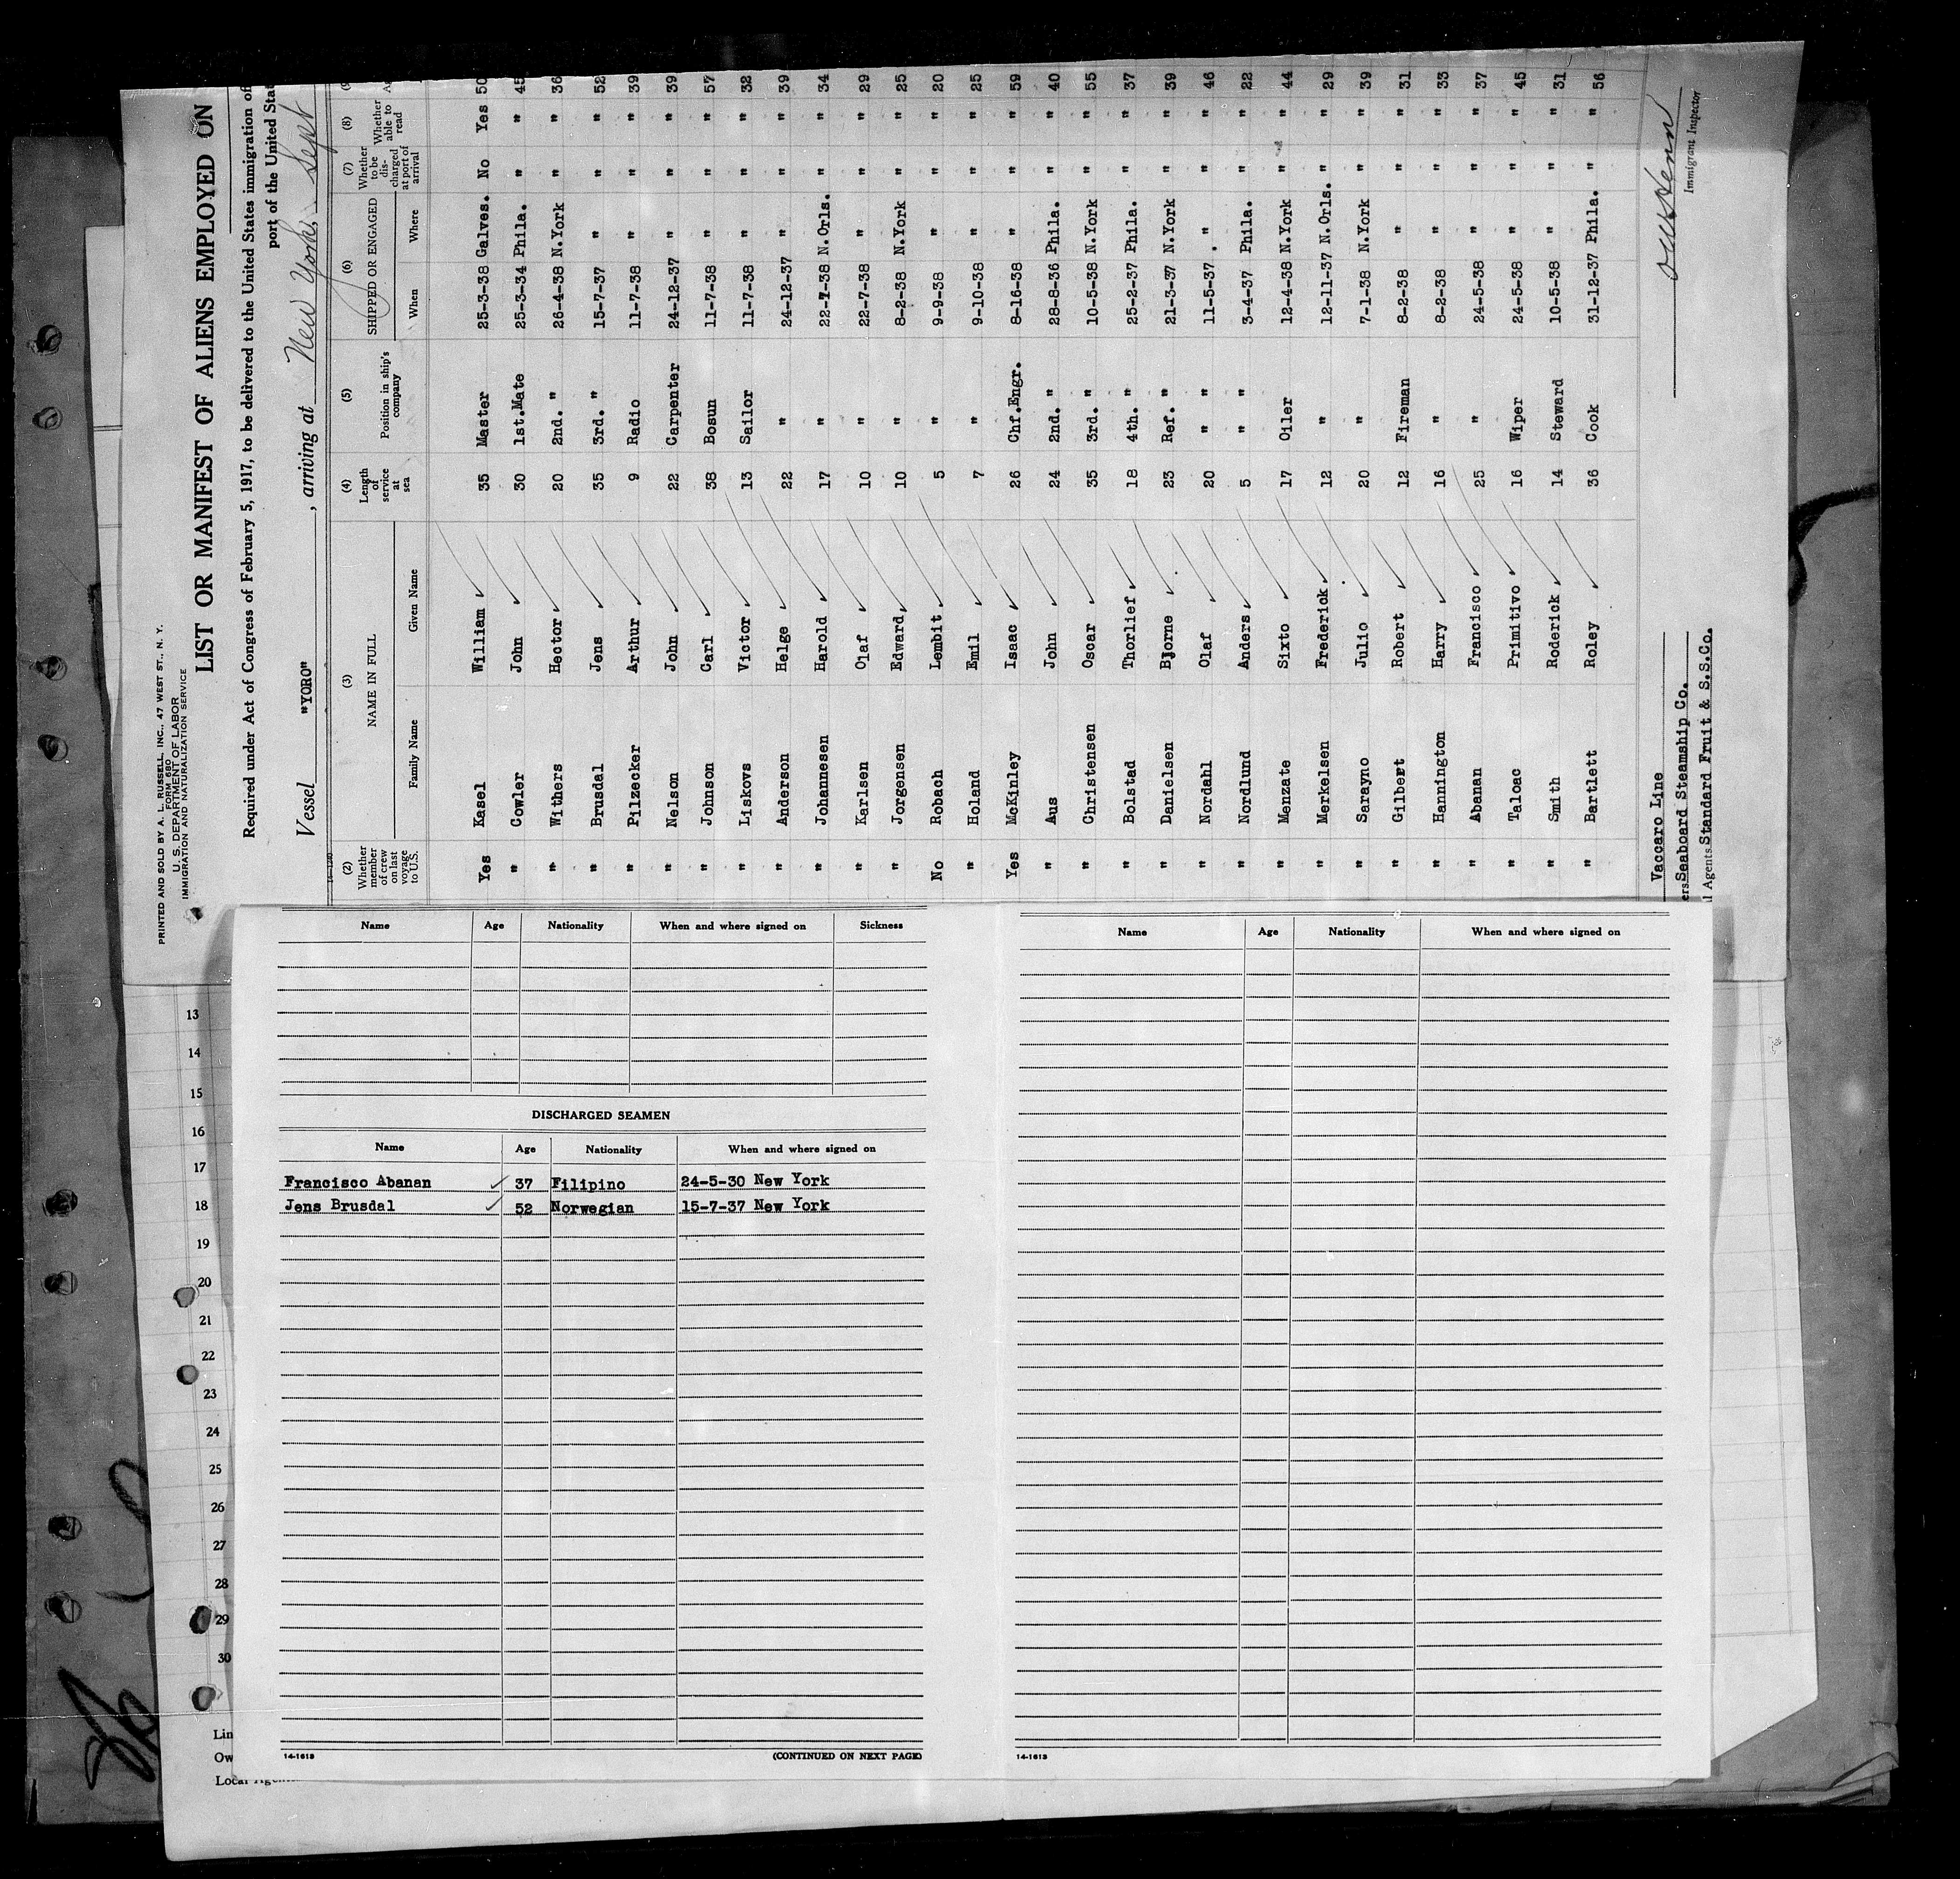 PRINTED AND SOLD BY A. L. RUSSELL, INC., 47 WEST ST., N. Y.
FORM 680
U. S. DEPARTMENT OF LABOR
IMMIGRATION AND NATURALIZATION SERVICE
LIST OR MANIFEST OF ALIENS EMPLOYED ON
Required under Act of Congress of February 5, 1917, to be delivered to the United States immigration of
port of the United Stat
Vessel "YORO", arriving at New York, Sept
(2) Whether member of crew on last voyage to U.S. (3) NAME IN FULL Family Name Given Name (4) Length of service at sea (5) Position in ship's company (6) SHIPPED OR ENGAGED When Where (7) Whether to be discharged at port of arrival (8) Whether able to read
Yes Kasel William 35 Master 25-3-38 Galves. No Yes 50
" Cowler John 30 1st.Mate 25-3-34 Phila. " " 45
" Withers Hector 20 2nd. " 26-4-38 N.York " " 36
" Brusdal Jens 35 3rd. " 15-7-37 " " " 52
" Pilzecker Arthur 9 Radio 11-7-38 " " " 39
" Nelson John 22 Carpenter 24-12-37 " " " 39
" Johnson Carl 38 Bosun 11-7-38 " " " 57
" Liskovs Victor 13 Sailor 11-7-38 " " " 32
" Anderson Helge 22 " 24-12-37 " " " 39
" Johannesen Harold 17 " 22-7-38 N.Orls. " " 34
" Karlsen Olaf 10 " 22-7-38 " " " 29
" Jorgensen Edward 10 " 8-2-38 N.York " " 25
No Robach Lembit 5 " 9-9-38 " " " 20
" Holand Emil 7 " 9-10-38 " " " 25
Yes McKinley Isaac 26 Chf.Engr. 8-16-38 " " " 59
" Aus John 24 2nd. " 28-8-36 Phila. " " 40
" Christensen Oscar 35 3rd. " 10-5-38 N.York " " 55
" Bolstad Thorlief 18 4th. " 25-2-37 Phila. " " 37
" Danielsen Bjorne 23 Ref. " 21-3-37 N.York " " 39
" Nordahl Olaf 20 " " 11-5-37 " " " 46
" Nordlund Anders 5 " " 3-4-37 Phila. " " 22
" Menzate Sixto 17 Oiler 12-4-38 N.York " " 44
" Merkelsen Frederick 12 " 12-11-37 N.Orls. " " 29
" Sarayno Julio 20 " 7-1-38 N.York " " 39
" Gilbert Robert 12 Fireman 8-2-38 " " " 31
" Hannington Harry 16 " 8-2-38 " " " 33
" Abanan Francisco 25 " 24-5-38 " " " 37
" Taloac Primitivo 16 Wiper 24-5-38 " " " 45
" Smith Roderick 14 Steward 10-5-38 " " " 31
" Bartlett Roley 36 Cook 31-12-37 Phila. " " 56
Vaccaro Line
ers Seaboard Steamship Co.
l Agents Standard Fruit & S.S.Co.
Immigrant Inspector
Name Age Nationality When and where signed on Sickness
DISCHARGED SEAMEN
Name Age Nationality When and where signed on
Francisco Abanan 37 Filipino 24-5-30 New York
Jens Brusdal 52 Norwegian 15-7-37 New York
14-1613 (CONTINUED ON NEXT PAGE)
Name Age Nationality When and where signed on
14-1613
13
14
15
16
17
18
19
20
21
22
23
24
25
26
27
28
29
30
Lin
Ow
Local Agen